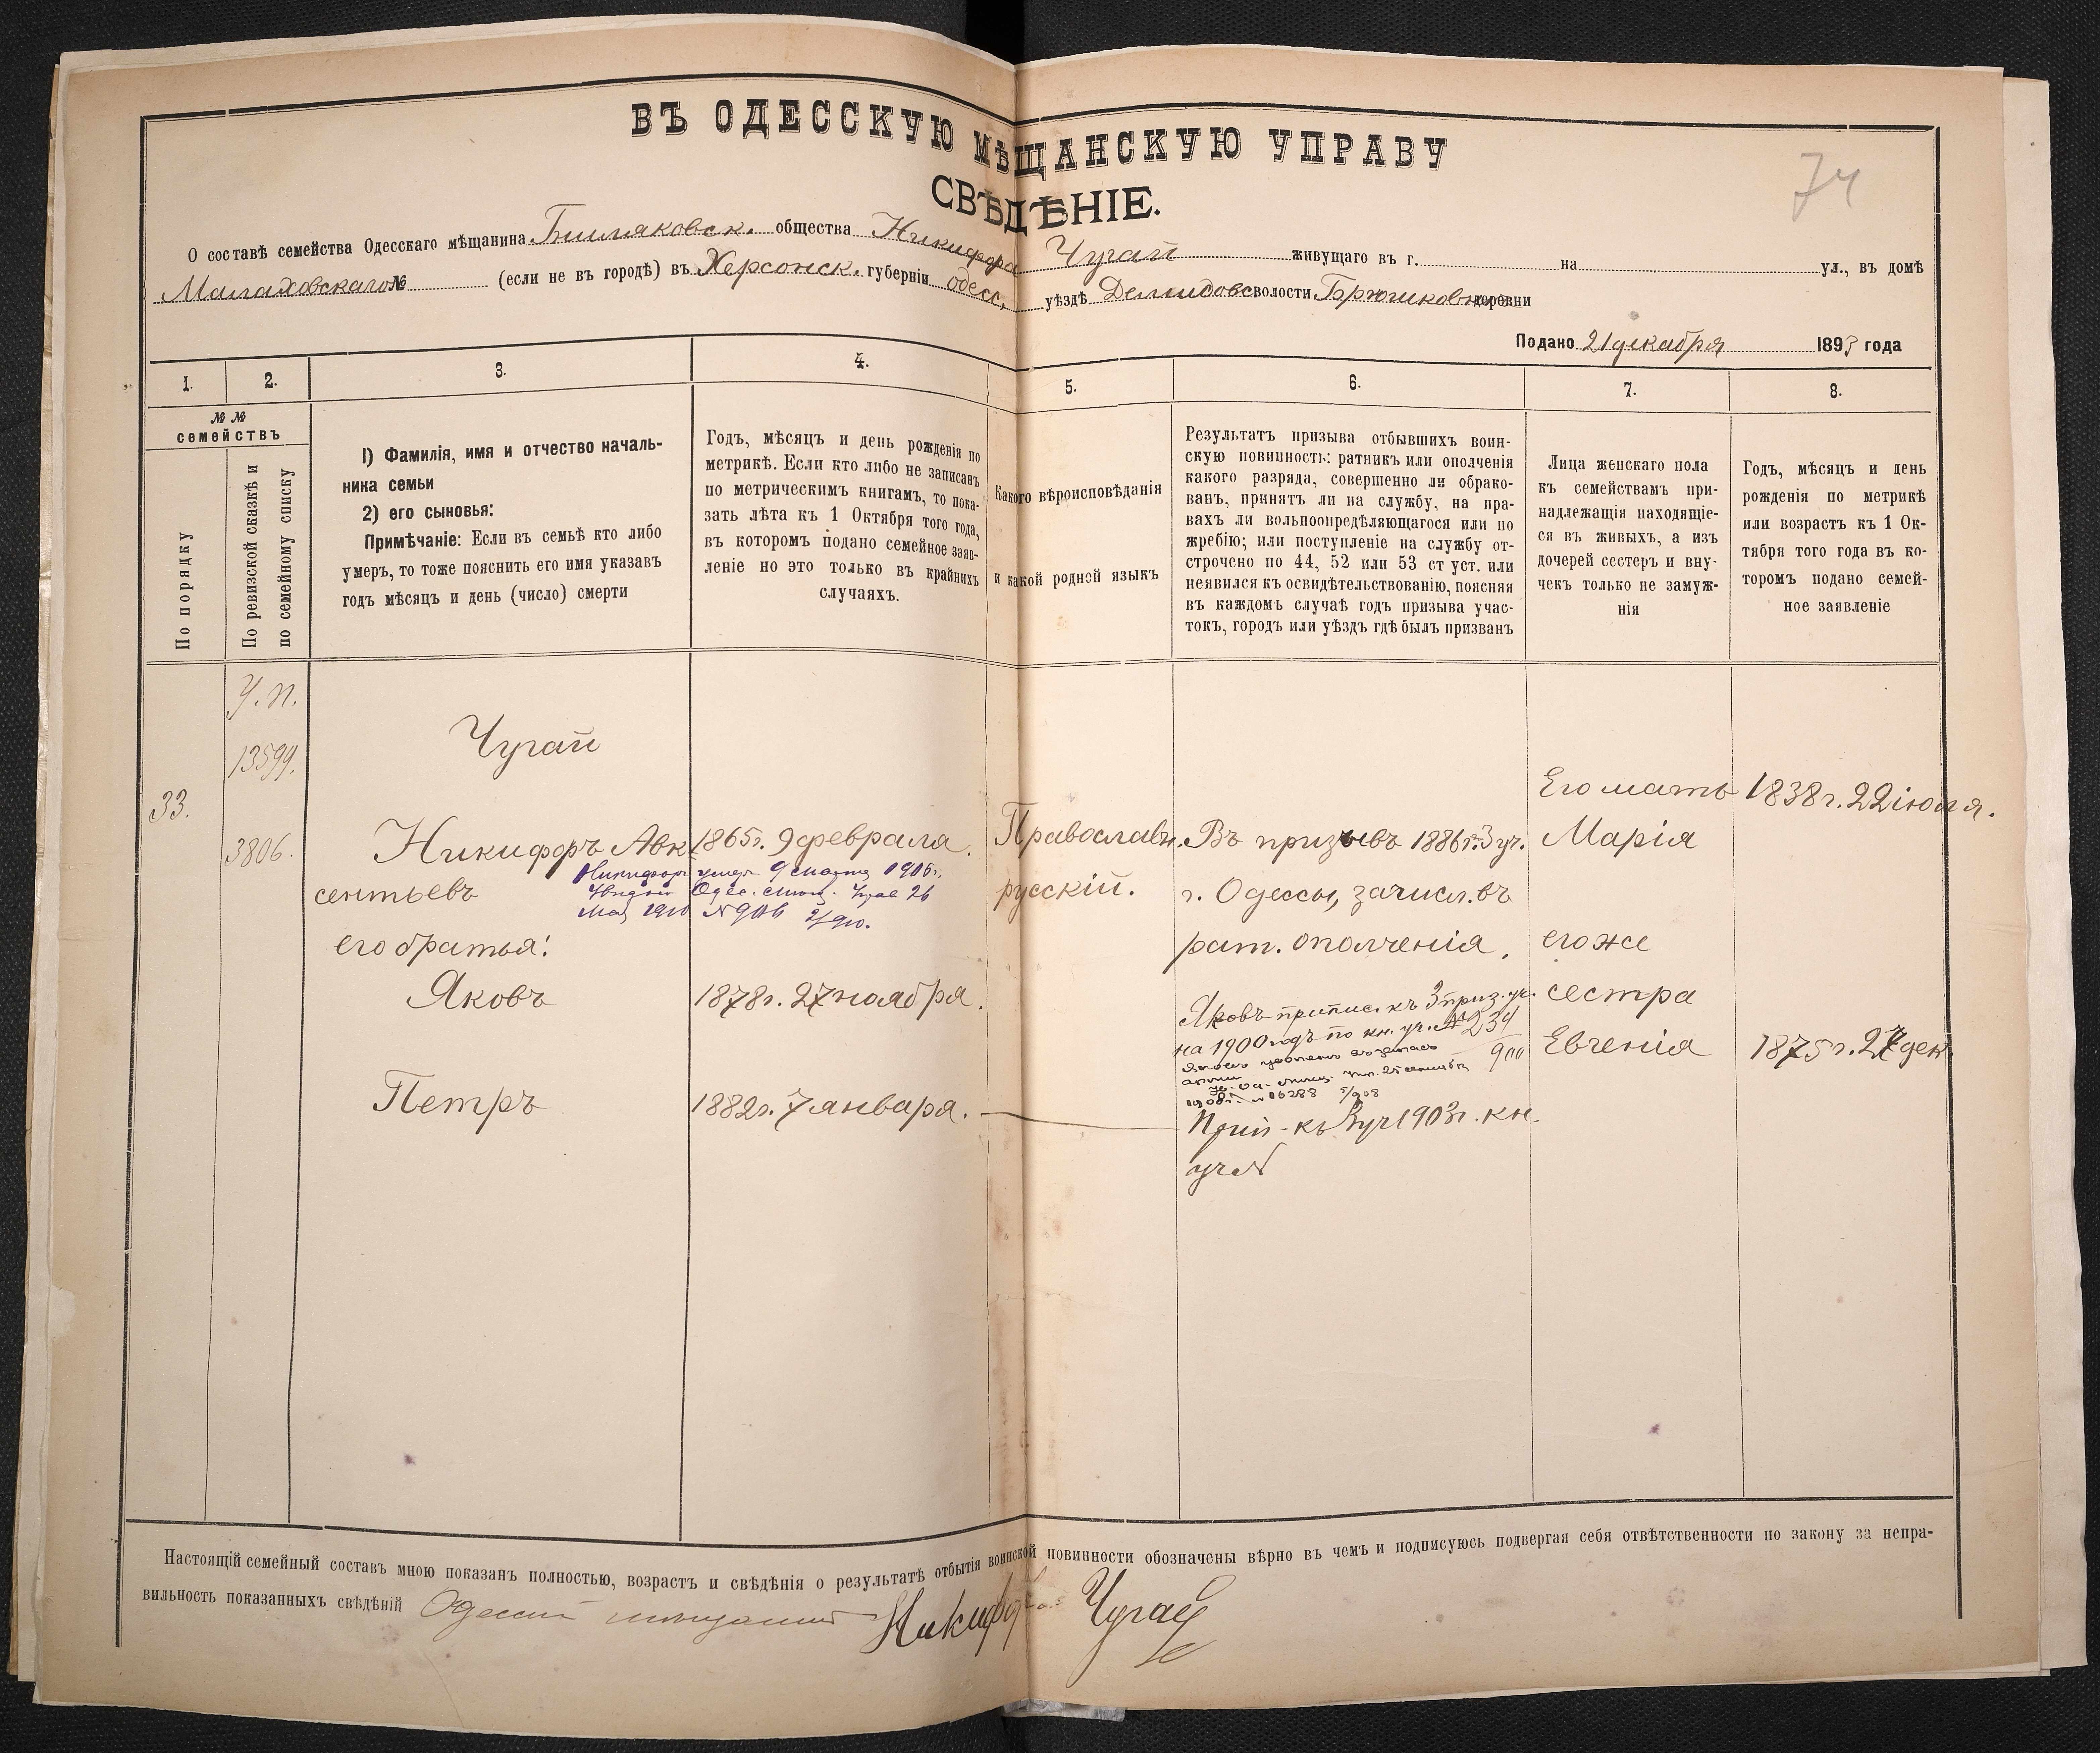 ВЪ ОДЕССКУЮ МѢЩАНСКУЮ УПРАВУ
74
СВѢДѢНІЕ.
О составѣ семейства Одесскаго мѣщанина Биляковск. общества Никифора Чугай живущаго въ г. на ул., въ домѣ
Малаховскаго № (если не въ городѣ) въ Херсонск. губерніи Одесс. уѣздѣ Демидовс волости деревни
Подано 21 декабря 1893 года
1. 2. 3. 4. 5. 6. 7. 8.
№ №
семействъ
По порядку
По ревизской сказкѣ и
по семейному списку
1) Фамилія, имя и отчество началь-
ника семьи
2) его сыновья:
Примѣчаніе: Если въ семьѣ кто либо
умеръ, то тоже пояснить его имя указавъ
годъ мѣсяцъ и день (число) смерти
Годъ, мѣсяцъ и день рожденія по
метрикѣ. Если кто либо не записанъ
по метрическимъ книгамъ, то пока-
зать лѣта къ 1 Октября того года,
въ которомъ подано семейное заяв-
леніе но это только въ крайнихъ
случаяхъ.
Какого вѣроисповѣданія
и какой родной языкъ
Результатъ призыва отбывшихъ воин-
скую повинность: ратникъ или ополченія
какого разряда, совершенно ли обрако-
ванъ, принятъ ли на службу, на пра-
вахъ ли вольноопредѣляющагося или по
жребію; или поступленіе на службу от-
строчено по 44, 52 или 53 ст уст. или
неявился къ освидѣтельствованію, поясняя
въ каждомъ случаѣ годъ призыва учас-
токъ, городъ или уѣздъ гдѣ былъ призванъ
Лица женскаго пола
къ семействамъ при-
надлежащія находящіе-
ся въ живыхъ, а изъ
дочерей сестеръ и вну-
чекъ только не замуж-
нія
Годъ, мѣсяцъ и день
рожденія по метрикѣ
или возрастъ къ 1 Ок-
тября того года въ ко-
торомъ подано семей-
ное заявленіе
У.п.
13599.
33.
3806.
Чугай
Никифоръ Авк
сентьевъ
1865г. 9 февраля.
Никифоръ умеръ 9 марта 1906г.
Одес. мѣщ. Упр. 26
Мая 1910 №
его братья:
Яковъ 1878г. 27 ноября.
Петръ 1882г. 7 января.
Православн.
русскій.
Въ призывъ 1886г. 3 уч.
г. Одессы, зачисл. въ
рат. ополченія.
Яковъ припис. къ 3 приз. уч.
на 1900 годъ по кн. уч. № 234
900
Прип-къ 3 уч 1903г. кн.
уч №
Его мать 1838г. 22 іюля.
Марія
его же
сестра
Евгенія 1875г. 27 дек.
Настоящій семейный составъ мною показанъ полностью, возрастъ и свѣдѣнія о результатѣ отбытія воинской повинности обозначены вѣрно въ чемъ и подписуюсь подвергая себя отвѣтственности по закону за непра-
вильность показанныхъ свѣдѣній Одесскій мѣщанинъ Никифоръ Чугай